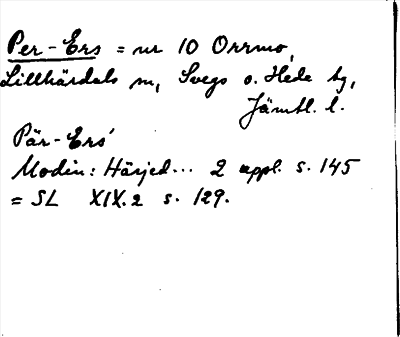 Per-Ers = nr 10 Orrmo,
Lillhärdals sn, Svegs o. Hede tg,
Jämtl. l.
Pär-Ers'
Modin: Härjed... 2 uppl. s. 145
= SL XIX.2 s. 129.